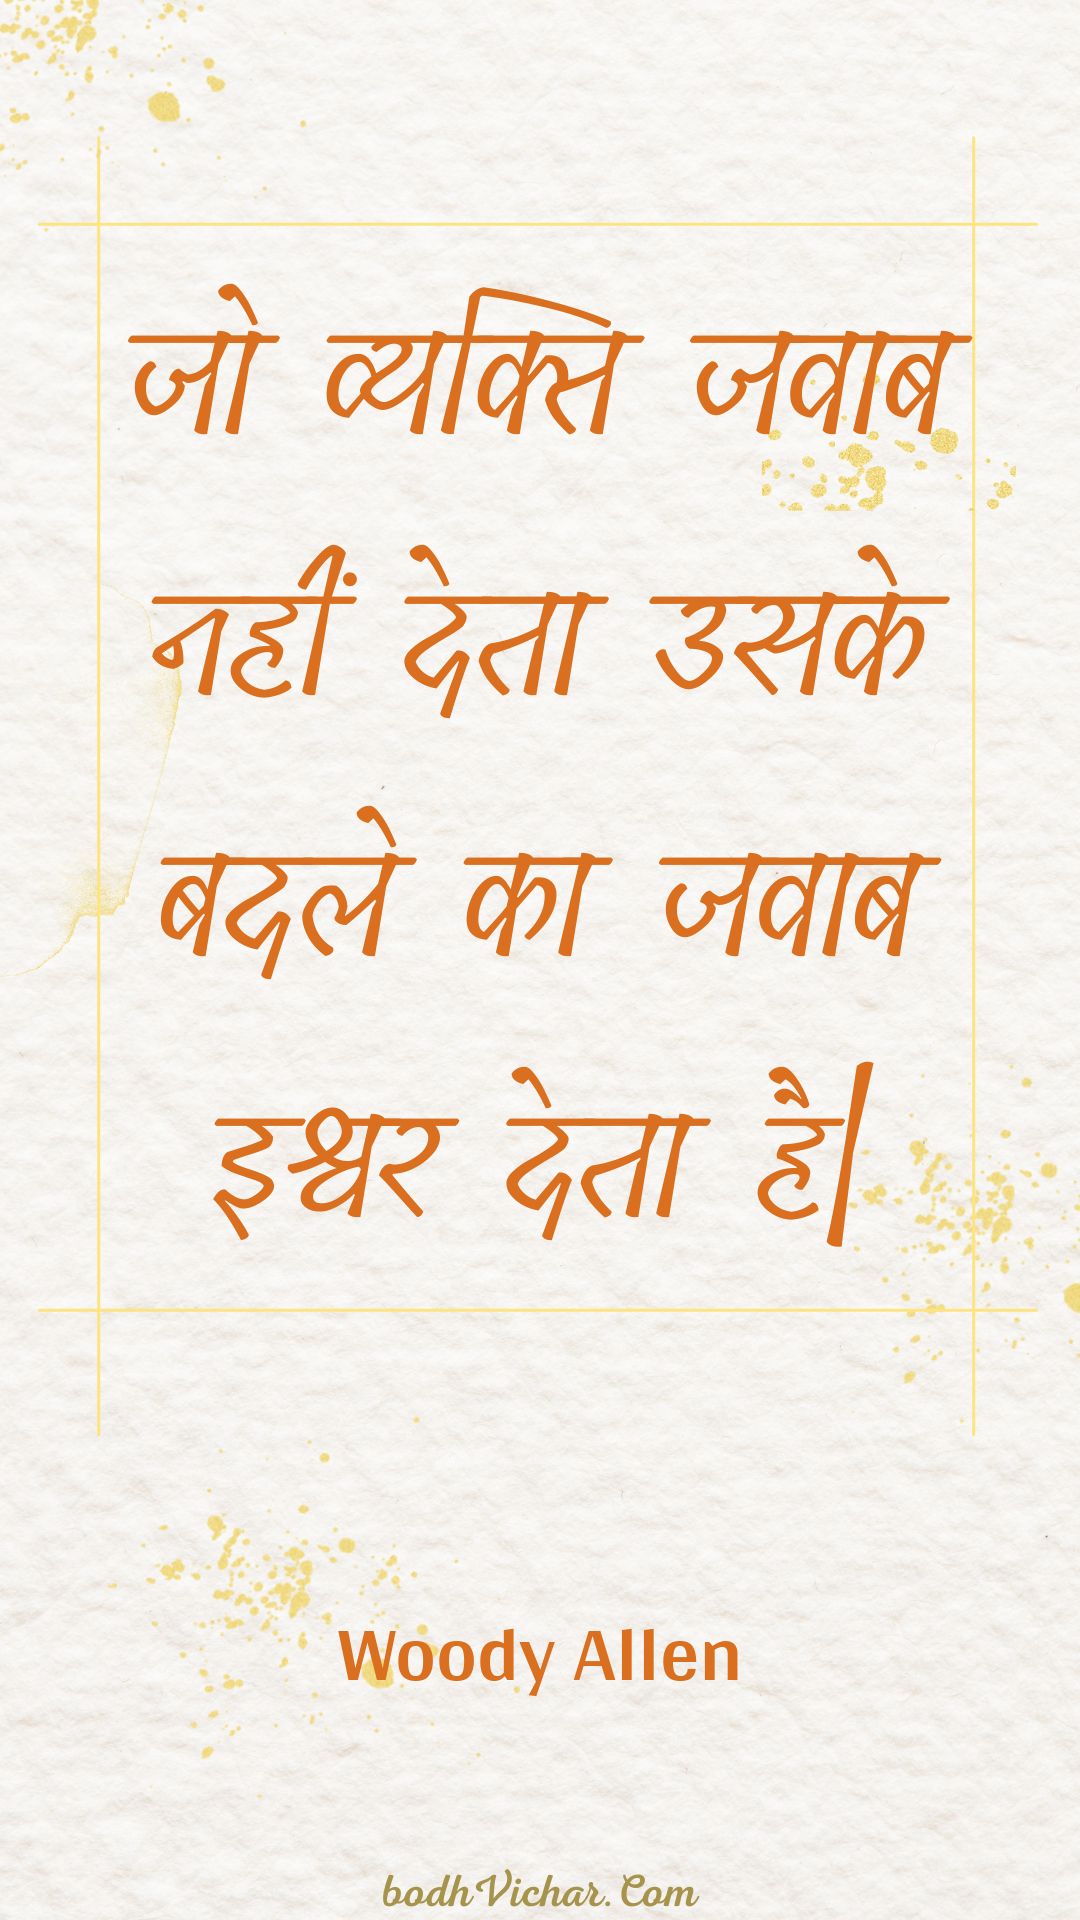 जो व्यक्ति जवाब
नहीं देता उसके
बदले का जवाब
इश्वर देता है|
Woody Allen
bodhVichar.Com